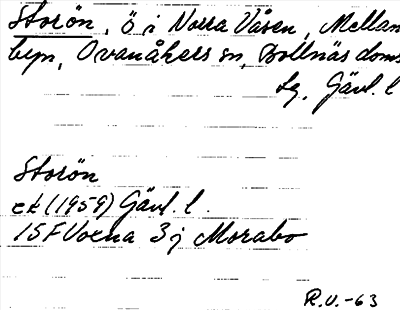 Storön, ö i Norra Våsen, Mellan
byn, Ovanåkers sn, Bollnäs doms
sg, Gävl. l
Storön
ek (1959) Gävl. l.
15F Voxna 3j Morabo
R.U.-63